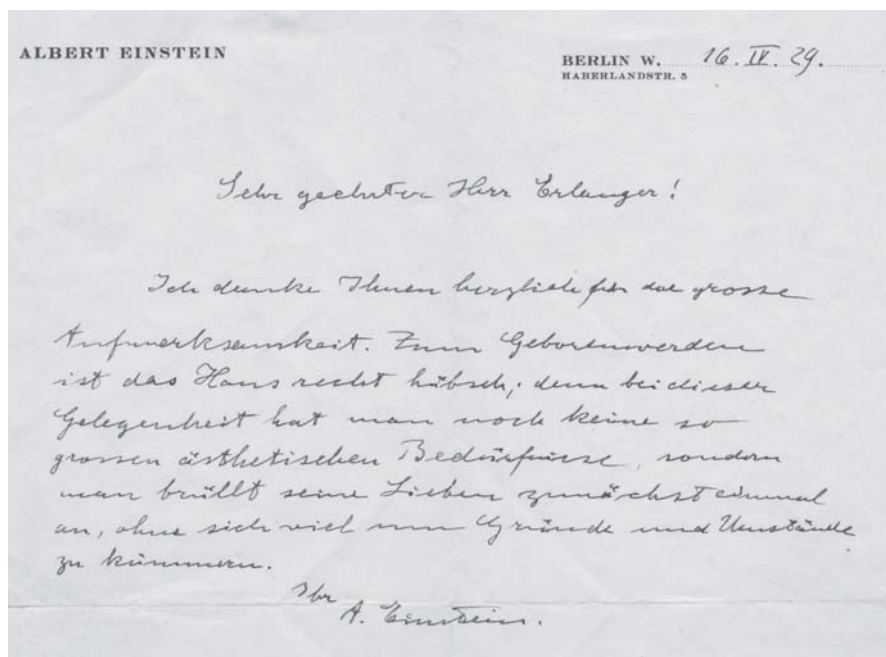 ALBERT EINSTEIN
BERLIN W. 16. IV. 29.
HABERLANDSTR. 5
Sehr geehrter Herr Erlanger!
Ich danke Ihnen herzlich für die grosse
Aufmerksamkeit. Zum Geborenwerden
ist das Haus recht hübsch; denn bei dieser
Gelegenheit hat man noch keine so
grossen ästhetischen Bedürfnisse, sondern
man brüllt seine Lieben zunächst einmal
an, ohne sich viel um Gründe und Umstände
zu kümmern.
Ihr
A. Einstein.